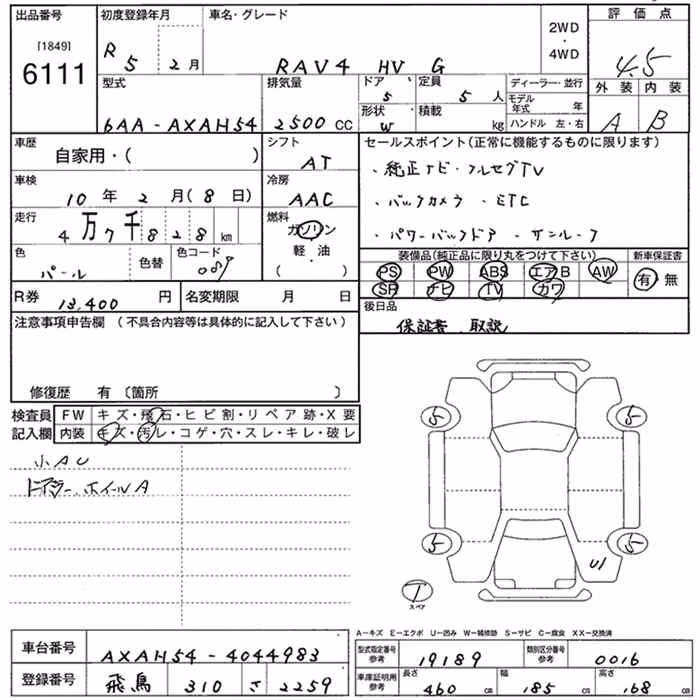 出品番号 初度登録年月 車名・グレード 評価点
[1849]
6111
R 5 2月 RAV4 HV G
2WD
・
4WD
4.5
型式 排気量 ドア 定員 ディーラー・並行 外装 内装
5 5人 モデル年式 年
形状 積載 ハンドル 左・右
6AA-AXAH54 2500 CC W kg A B
車歴 シフト セールスポイント(正常に機能するものに限ります)
自家用・( ) AT
・純正ナビ・フルセグTV
車検 冷房
10年 2月(8日) AAC
・バックカメラ・ETC
走行 燃料
4万7千828km ガソリン
・パワーバックドア・サンルーフ
色 色替 色コード 軽・油
パール 089 ( )
装備品(純正品に限り丸をつけて下さい) 新車保証書
PS PW ABS エアB AW 有・無
SR ナビ TV カワ
R券 13,400円 名変期限 月 日
後日品
保証書 取説
注意事項申告欄 (不具合内容等は具体的に記入して下さい)
修復歴 有〔箇所 〕
検査員 FW キズ・飛石・ヒビ割・リペア跡・X要
記入欄 内装 キズ・汚レ・コゲ・穴・スレ・キレ・破レ
小AU
ドアミラー、ホイールA
5 5
5 5
U1
T
スペア
A-キズ E-エクボ U-凹み W-補修跡 S-サビ C-腐食 XX-交換済
車台番号 AXAH54-4044983
型式指定番号 参考 19189 類別区分番号 参考 0016
登録番号 飛鳥 310 さ 2259
車庫証明用 参考 長さ 460 cm 幅 185 cm 高さ 168 cm